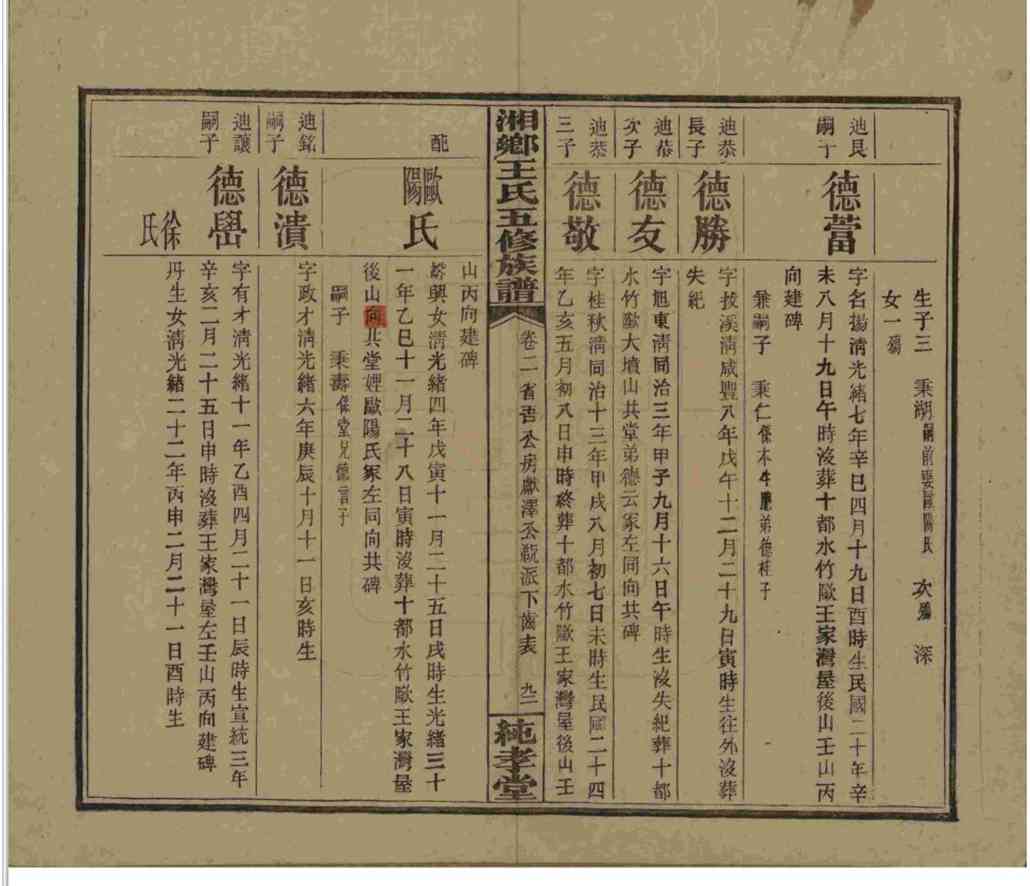 生子三 秉湖嗣前娶歐陽氏 次殤 深
女一殤
迪艮
嗣子
德蓄
字名揚淸光緒七年辛巳四月十九日酉時生民國二十年辛
未八月十九日午時沒葬十都水竹歐王家灣屋後山壬山丙
向建碑
兼嗣子 秉仁係木生胞弟德桂子
迪恭
長子
德勝
字按溪淸咸豐八年戊午十二月二十九日寅時生往外沒葬
失紀
迪恭
次子
德友
字旭東淸同治三年甲子九月十六日午時生沒失紀葬十都
水竹歐大墳山共堂弟德云冢左同向共碑
迪恭
三子
德敬
字桂秋淸同治十三年甲戌八月初七日未時生民國二十四
年乙亥五月初八日申時終葬十都水竹歐王家灣屋後山壬
湘鄉王氏五修族譜
卷二 省吾公房獻澤公 派下齒表 九二
純孝堂
山丙向建碑
配
歐陽氏
興女淸光緒四年戊寅十一月二十五日戌時生光緒三十
一年乙巳十一月二十八日寅時沒葬十都水竹歐王家灣屋
後山向共堂娌歐陽氏冢左同向共碑
嗣子 秉壽係堂兄德言子
迪銘
嗣子
德潰
字政才淸光緒六年庚辰十月十一日亥時生
迪讓
嗣子
德嶨
字有才淸光緒十一年乙酉四月二十一日辰時生宣統三年
辛亥二月二十五日申時沒葬王家灣屋左壬山丙向建碑
徐氏
丹生女淸光緒二十二年丙申二月二十一日酉時生